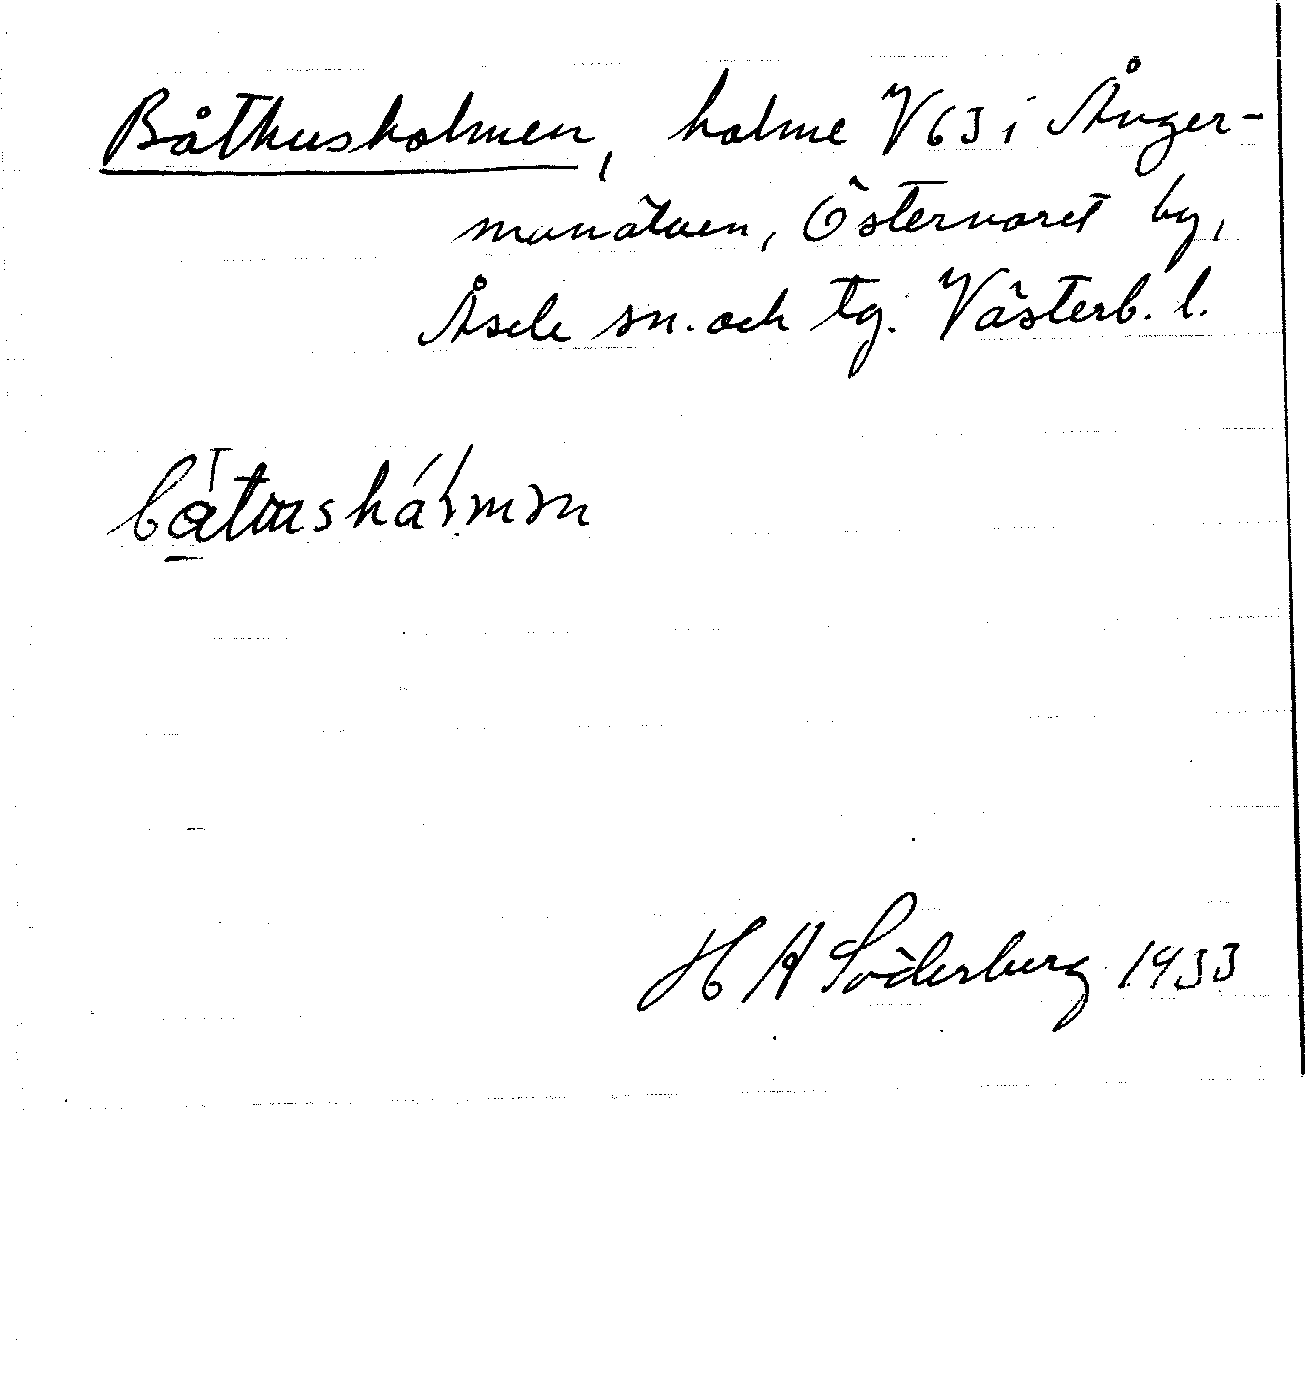 Båthusholmen, holme V63 i Ånger-
manälven, Östernoret by,
Åsele sn. och tg. Västerb. l.
H A Söderberg 1933